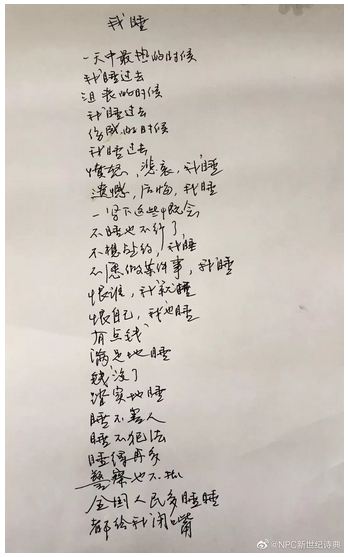 我睡
一天中最热的时候
我睡过去
沮丧的时候
我睡过去
伤感的时候
我睡过去
愤怒，悲哀，我睡
遗憾，后悔，我睡
一旦下这些概念
不睡也不行了，
不想赴约，我睡
不愿做某件事，我睡
恨谁，我就睡
恨自己，我也睡
有点钱
满足地睡
钱没了
踏实地睡
睡不害人
睡不犯法
睡得再多
警察也不抓
全国人民多睡睡
都给我闭嘴
@NPC新世纪诗典